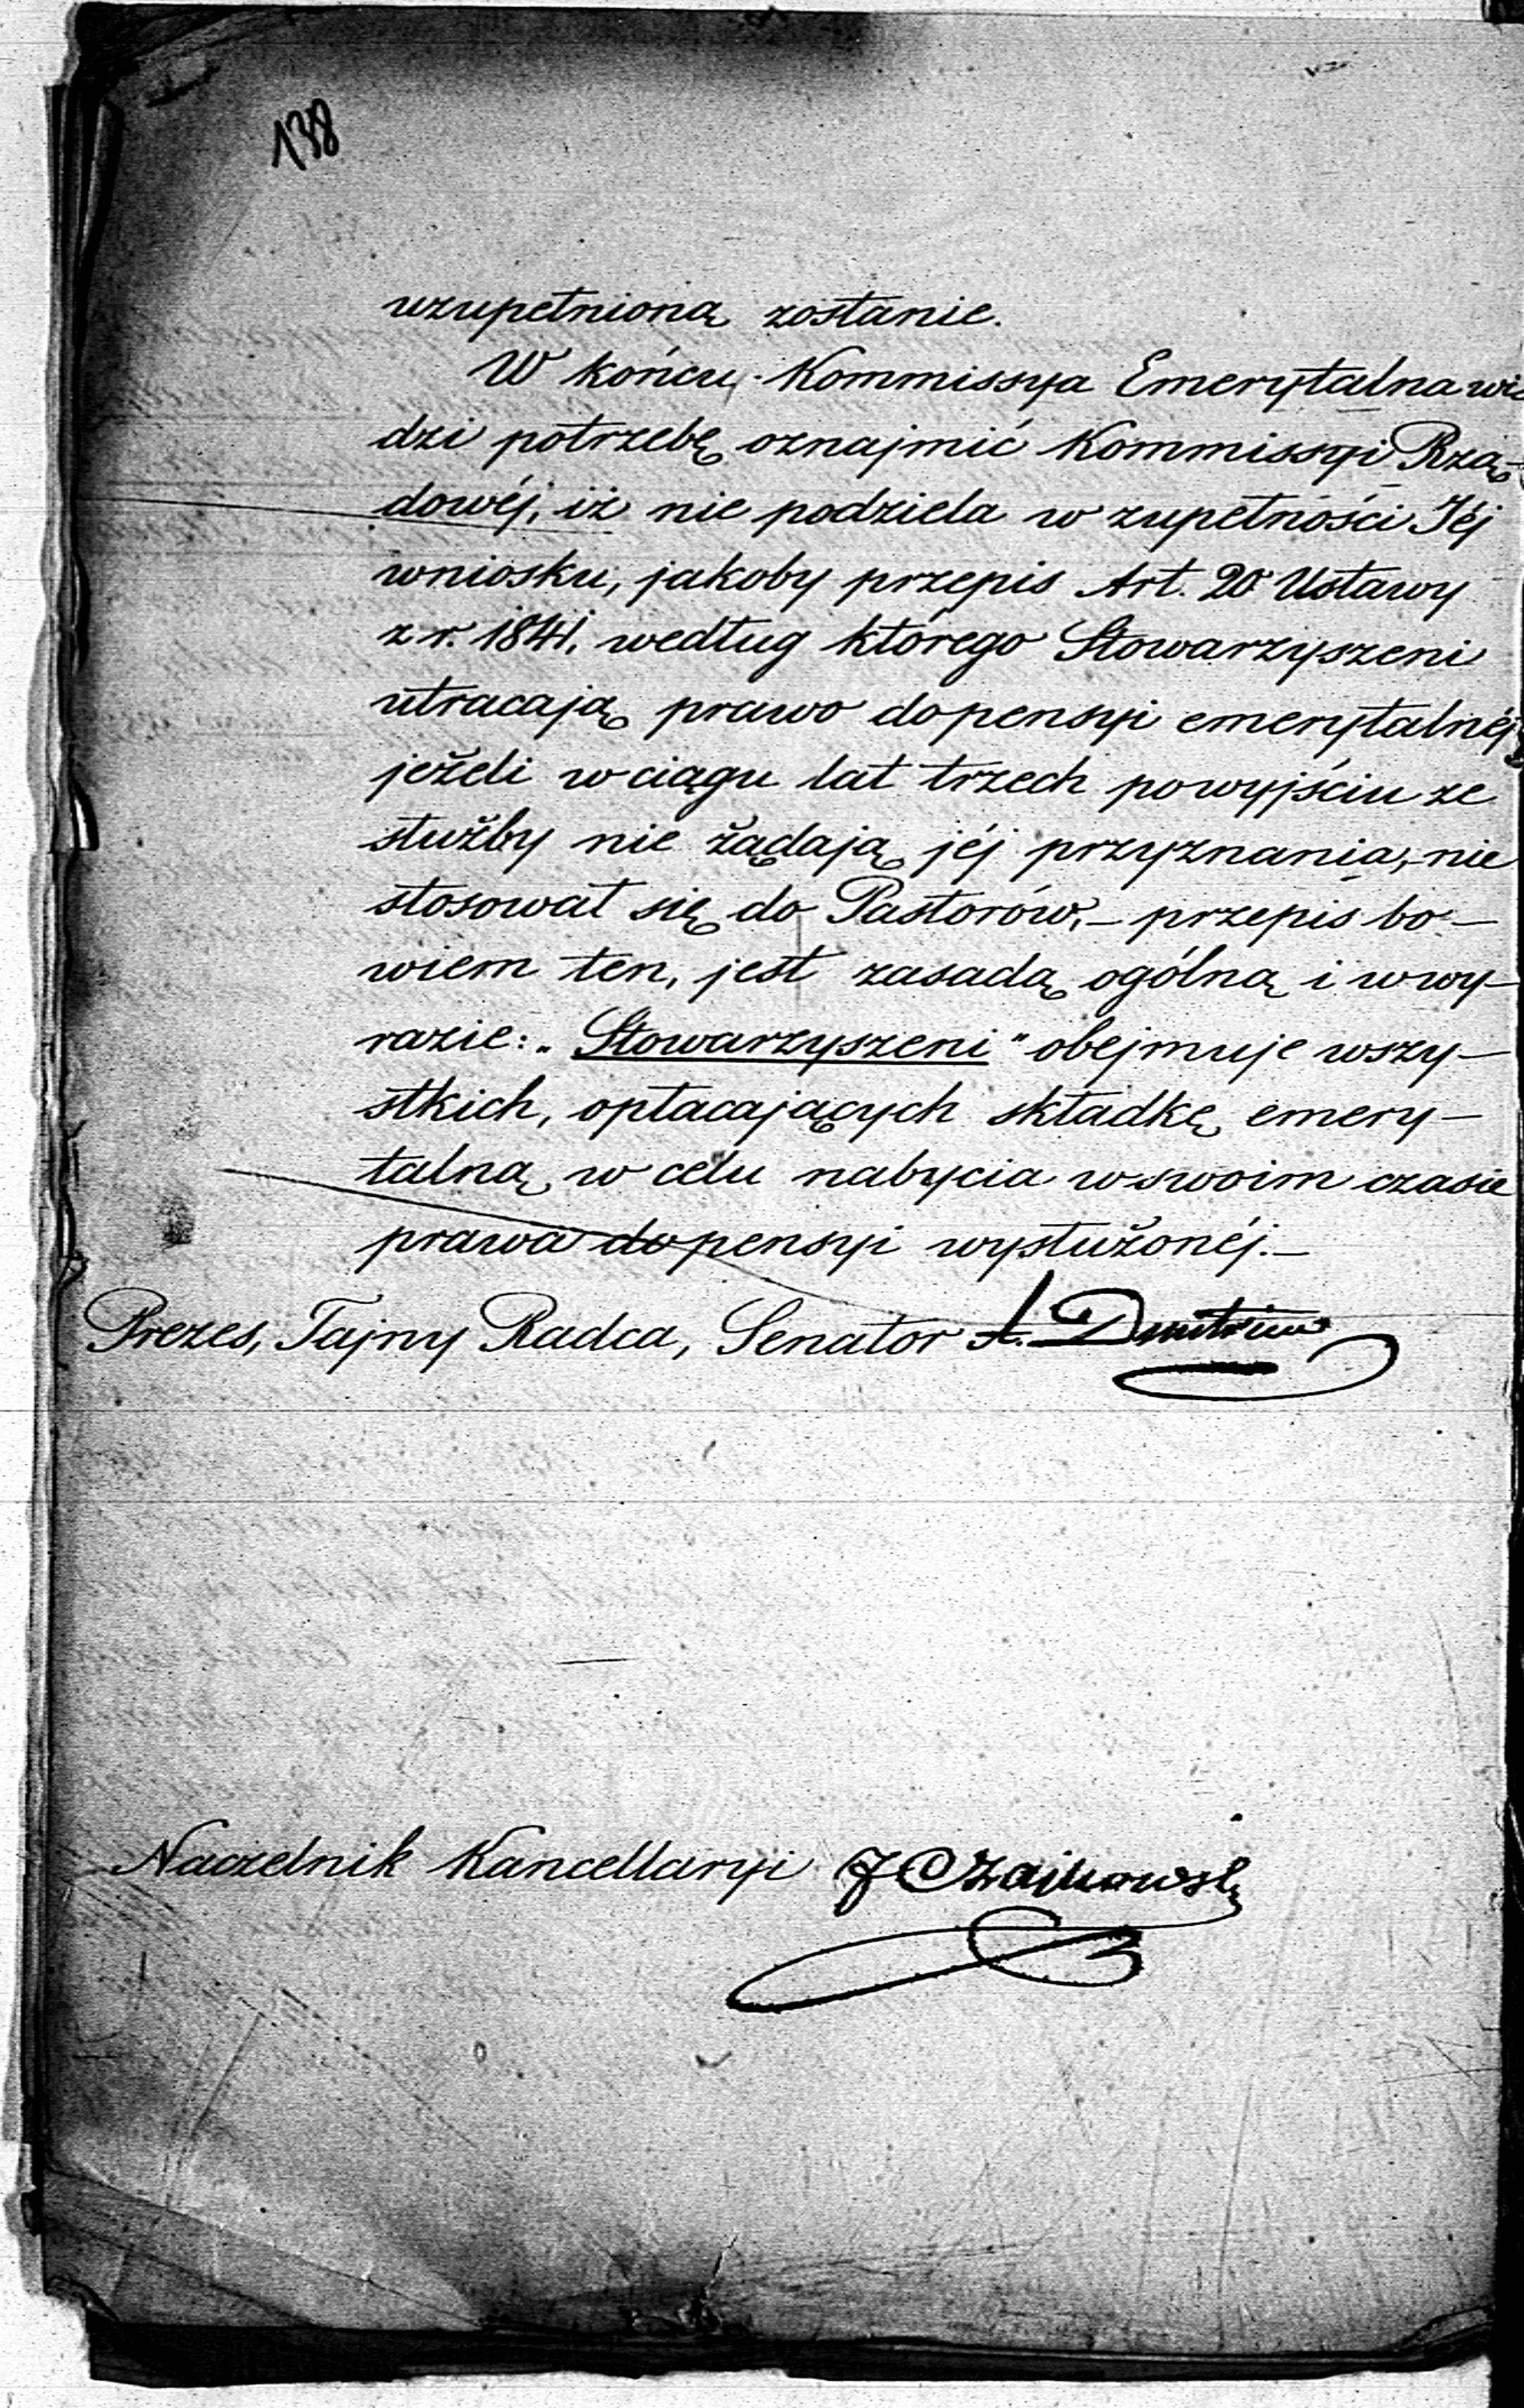 138
uzupełnioną zostanie.
W końcu, Kommissya Emerytalna wi
dzi potrzebę oznajmić Kommissyi Rzą-
dowéj, iż nie podziela w zupełności Jéj
wniosku, jakoby przepis Art. 20 Ustawy
z r. 1841, według którego Stowarzyszeni
utracają prawo do pensyi emerytalnéj,
jeżeli w ciągu lat trzech po wyjściu ze
służby nie żądają jéj przyznania, nie
stosował się do Pastorów, – przepis bo-
wiem ten, jest zasadą ogólną i w wy-
razie: „Stowarzyszeni" obejmuje wszy-
stkich, opłacających składkę emery-
talną w celu nabycia w swoim czasie
prawa do pensyi wysłużonéj. –
Prezes, Tajny Radca, Senator A.
Naczelnik Kancellaryi J Czajkowski